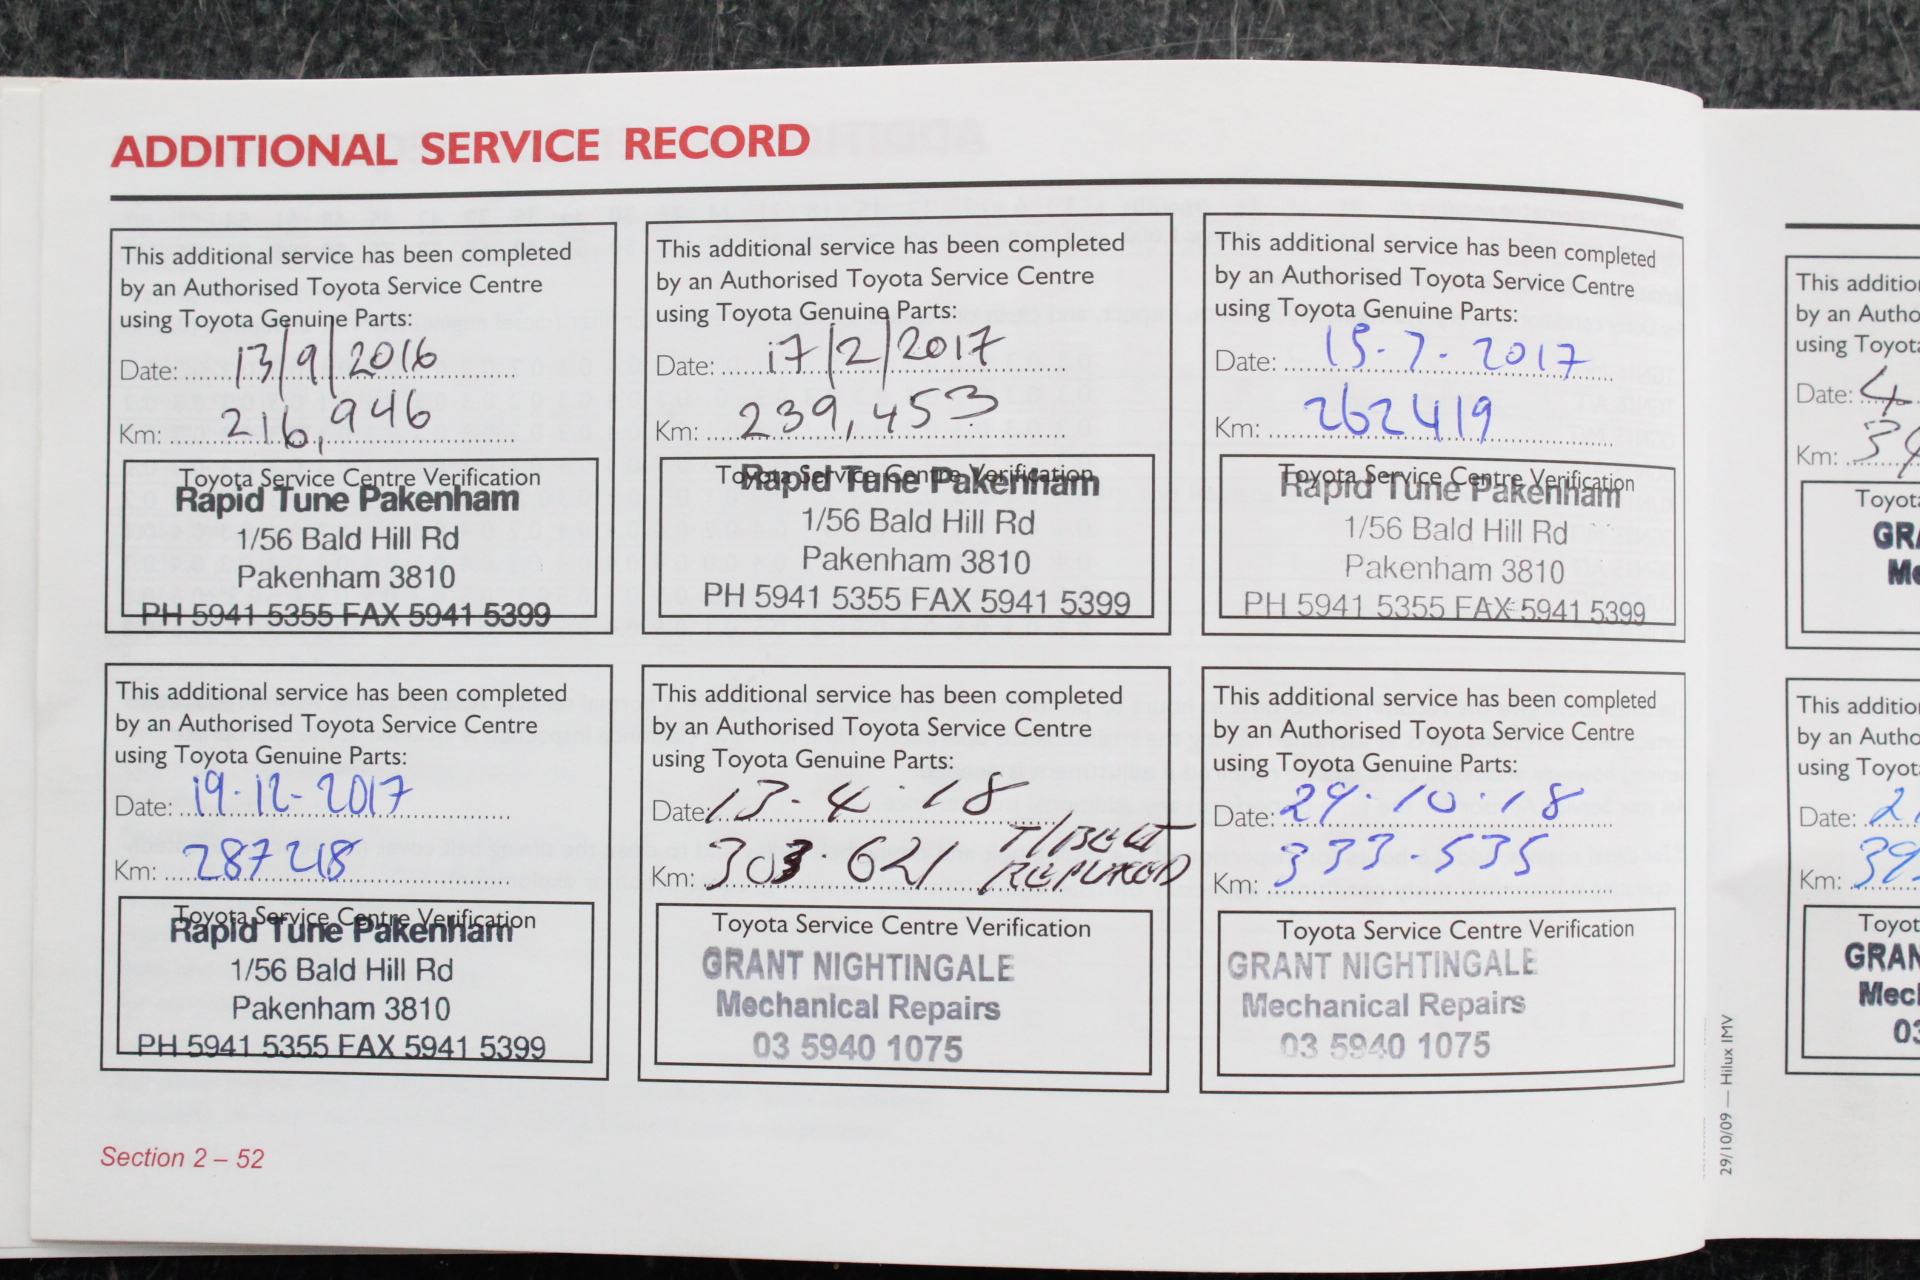 ADDITIONAL SERVICE RECORD
This additional service has been completed
by an Authorised Toyota Service Centre
using Toyota Genuine Parts:
Date: 13/9/2016
Km: 216,946
Toyota Service Centre Verification
Rapid Tune Pakenham
1/56 Bald Hill Rd
Pakenham 3810
PH 5941 5355 FAX 5941 5399
This additional service has been completed
by an Authorised Toyota Service Centre
using Toyota Genuine Parts:
Date: 17/2/2017
Km: 239,453
Toyota Service Centre Verification
Rapid Tune Pakenham
1/56 Bald Hill Rd
Pakenham 3810
PH 5941 5355 FAX 5941 5399
This additional service has been completed
by an Authorised Toyota Service Centre
using Toyota Genuine Parts:
Date: 15-7-2017
Km: 262419
Toyota Service Centre Verification
Rapid Tune Pakenham
1/56 Bald Hill Rd
Pakenham 3810
PH 5941 5355 FAX 5941 5399
This additional service has been completed
by an Authorised Toyota Service Centre
using Toyota Genuine Parts:
Date: 19-12-2017
Km: 287218
Toyota Service Centre Verification
Rapid Tune Pakenham
1/56 Bald Hill Rd
Pakenham 3810
PH 5941 5355 FAX 5941 5399
This additional service has been completed
by an Authorised Toyota Service Centre
using Toyota Genuine Parts:
Date: 13-4-18
Km: 303·621
T/BELT
REPLACED
Toyota Service Centre Verification
GRANT NIGHTINGALE
Mechanical Repairs
03 5940 1075
This additional service has been completed
by an Authorised Toyota Service Centre
using Toyota Genuine Parts:
Date: 29·10·18
Km: 333 535
Toyota Service Centre Verification
GRANT NIGHTINGALE
Mechanical Repairs
03 5940 1075
Section 2 – 52
29/10/09 — Hilux IMV
This addition
by an Autho
using Toyota
Date: 4
Km:
Toyota
GRA
Me
This addition
by an Autho
using Toyota
Date: 2
Km: 39
Toyot
GRAN
Mech
03